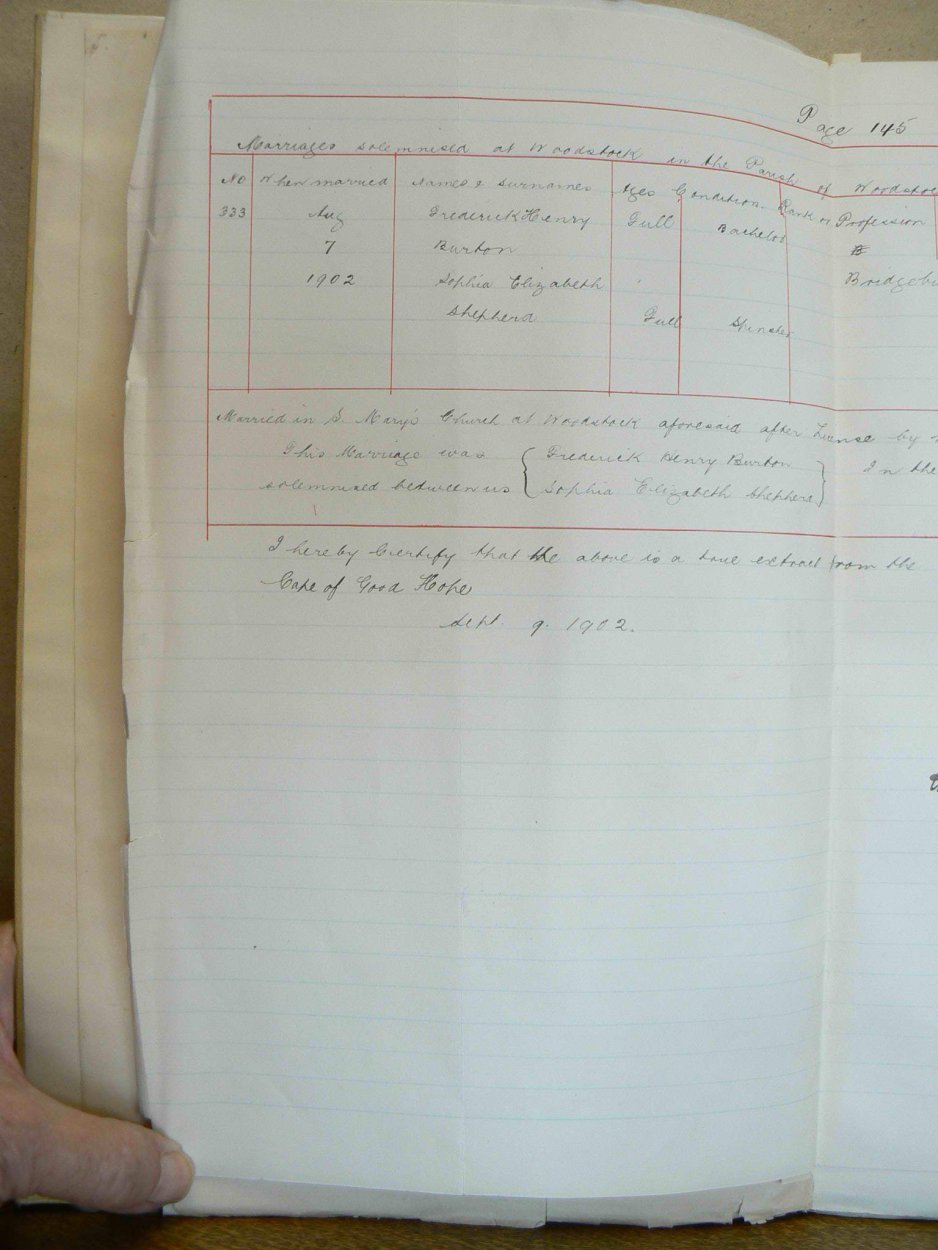 Page 145
Marriages solemnised at Woodstock in the Parish of Woodstoc
No When married Names & Surnames Ages Condition. Rank or Profession
333 Aug Frederick Henry Full Bachelor
7 Burton B
1902 Sophia Elizabeth Bridgebu
Shepherd Full Spinster
Married in S. Mary's Church at Woodstock aforesaid after License by
This Marriage was { Frederick Henry Burton } In the
solemnised between us { Sophia Elizabeth Shepherd }
I hereby Certify that the above is a true extract from the
Cape of Good Hope
Sept 9. 1902.